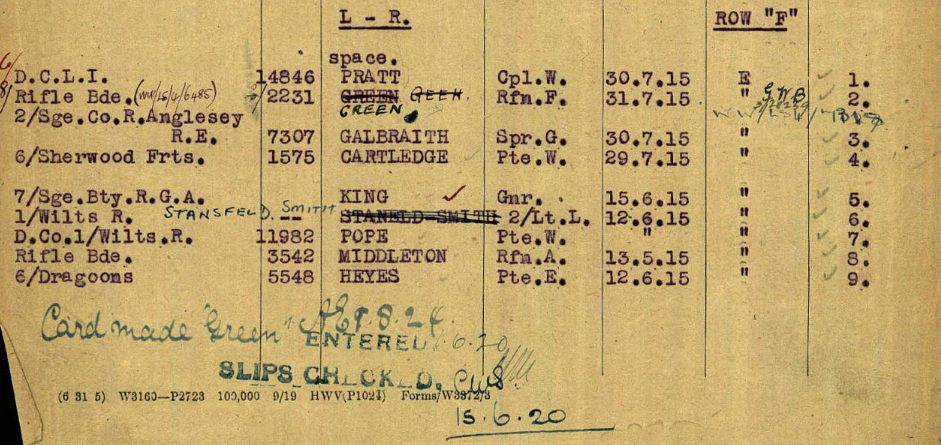 L - R. ROW "F"
space.
D.C.L.I. 14846 PRATT Cpl.W. 30.7.15 E 1.
Rifle Bde. 2231 GREEN GREEN Rfn.F. 31.7.15 " 2.
2/Sge.Co.R.Anglesey
R.E. 7307 GALBRAITH Spr.G. 30.7.15 " 3.
6/Sherwood Frts. 1575 CARTLEDGE Pte.W. 29.7.15 " 4.
7/Sge.Bty.R.G.A. KING Gnr. 15.6.15 " 5.
1/Wilts R. STANSFELD. SMITH -- STANELD-SMITH 2/Lt.L. 12.6.15 " 6.
D.Co.1/Wilts.R. 11982 POPE Pte.W. " " 7.
Rifle Bde. 3542 MIDDLETON Rfn.A. 13.5.15 " 8.
6/Dragoons 5548 HEYES Pte.E. 12.6.15 " 9.
Card made "Green" 8.24
ENTERED 6.20
SLIPS CHECKED.
(6 31 5) W3160—P2723 100,000 9/19 HWV(P1024) Forms/W3372/3
15.6.20